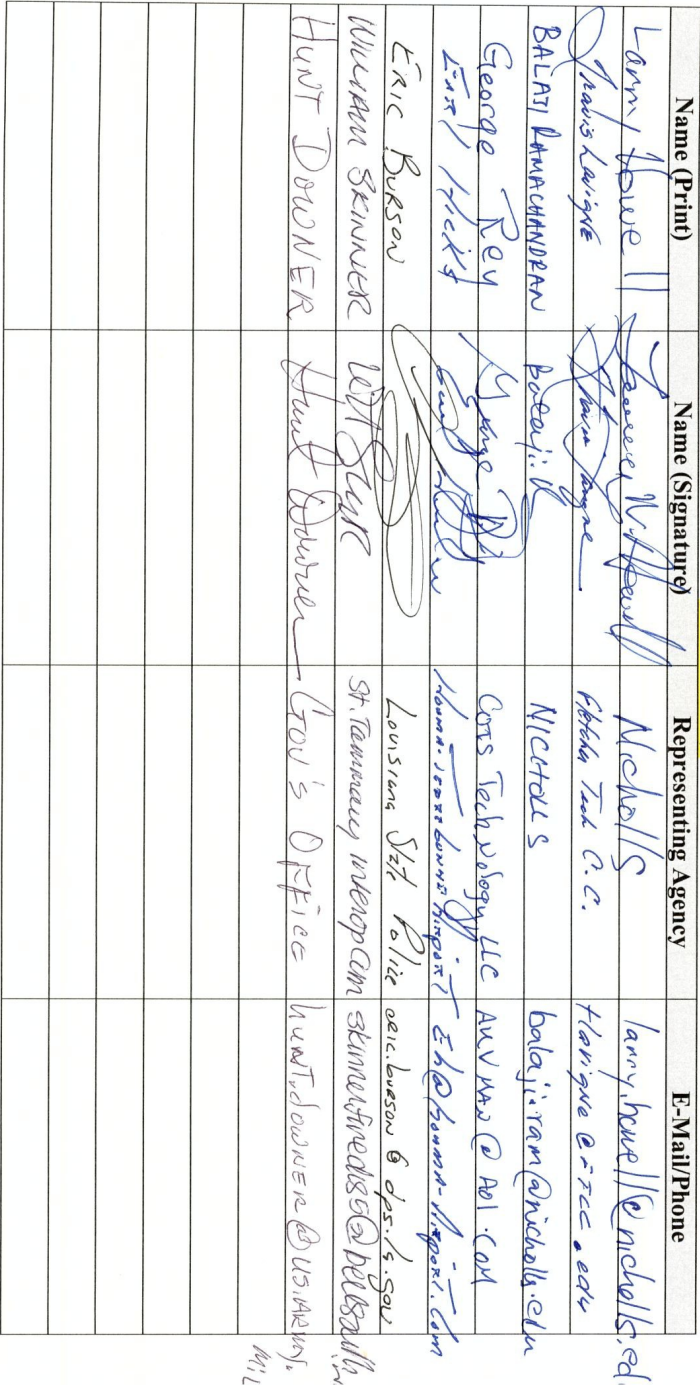 Name (Print) Name (Signature) Representing Agency E-Mail/Phone
Larry Howell Nicholls larry.howell@nicholls.ed
Travis Lavigne Travis Lavigne Fletcher Tech C.C. tlavigne@FTCC.edu
BALAJI RAMACHANDRAN Balaji.R NICHOLLS balaji.ram@nicholls.edu
George Rey George COTS Technology LLC AUVMAN@AOL.COM
Earl Hicks Houma-Terrebonne Airport
ERIC BURSON Louisiana State Police eric.burson@dps.la.gov
WILLIAM SKINNER St. Tammany skinnerfiredis5@bellsouth
HUNT DOWNER Hunt Downer Gov's OFFice hunt.downer@us.army.
MIL